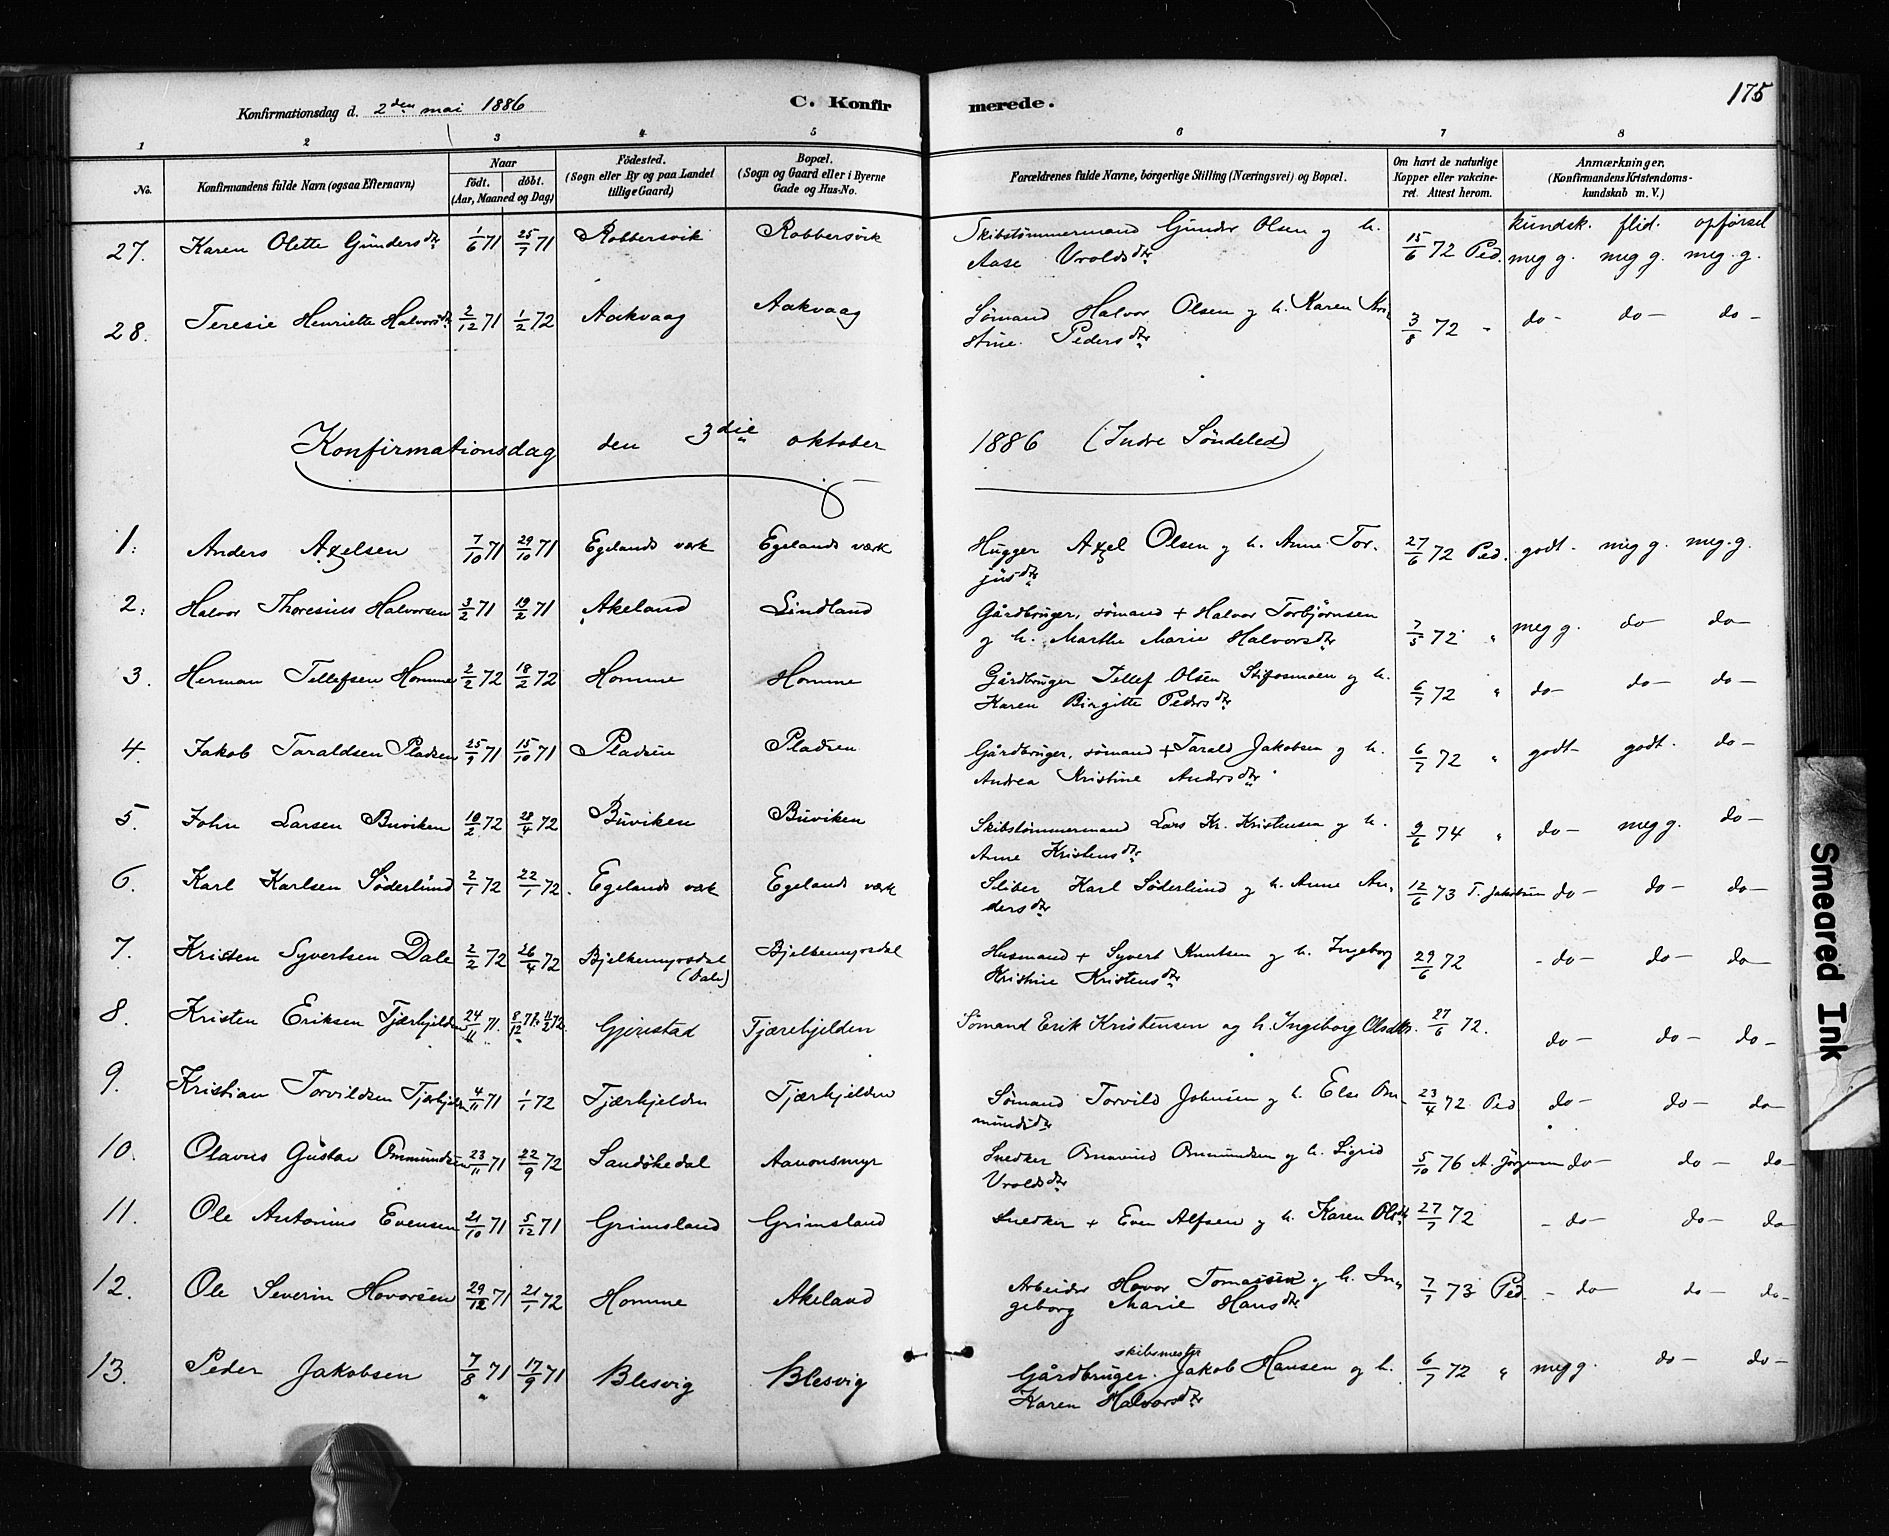 Konfirmationsdag d. 2den mai 1886 C. Konfirmerede. 175
1 2 3 4 5 6 7 8
No. Konfirmandens fulde Navn (ogsaa Efternavn) Naar født. døbt. (Aar, Maaned og Dag) Fødested. (Sogn eller By og paa Landet tillige Gaard) Bopæl. (Sogn og Gaard eller i Byerne Gade og Hus-No. Forældrenes fulde Navne, borgerlige Stilling (Næringsvei) og Bopæl. Om havt de naturlige Kopper eller vakcineret. Attest herom. Anmærkninger, (Konfirmandens Kristendomskundskab m. V.)
kundsk. flid. opførsel
27. Karen Olette Gundersdtr 1/6 71 25/7 71 Robbersvik Robbersvik Skibstømmermand Gunder Olsen og h. Aase Uroldsdtr 15/6 72 Ped. meg g. meg g. meg. g.
28. Teresie Henriette Halvorsdtr 2/12 71 1/2 72 Aakvaag Aakvaag Sømand Halvor Olsen og h. Karen Kristine Pedersdtr 3/8 72 " do- do- do-
Konfirmationsdag den 3die oktober 1886 (Indre Søndeled)
1. Anders Axelsen 7/10 71 29/10 71 Egelands værk Egelands værk Hugger Axel Olsen og h. Anne Torjusdtr 27/6 72 Ped. godt. meg g. meg. g.
2. Halvor Thoresius Halvorsen 3/2 71 19/2 71 Akeland Lindland Gårdbruger, sømand + Halvor Torbjørnsen og h. Marthe Marie Halvorsdtr 7/5 72 " meg g. do- do-
3. Herman Tellefsen Homme 2/2 72 18/2 72 Homme Homme Gårdbruger Tellef Olsen Stifosmoen og h. Karen Birgitte Pedersdtr 6/7 72 " do- do- do-
4. Jakob Taraldsen Pladsen 25/9 71 15/10 71 Pladsen Pladsen Gårdbruger, sømand + Tarald Jakobsen og h. Andrea Kristine Andersdtr 6/7 72 " godt- godt. do-
5. John Larsen Buviken 10/2 72 28/4 72 Buviken Buviken Skibstømmermand Lars Kr. Kristensen og h. Anne Kristensdtr 9/6 74 " do- meg g. do-
6. Karl Karlsen Søderlund 2/1 72 22/1 72. Egelands værk Egelands værk Sliber Karl Søderlund og h. Anne Andersdtr 12/6 73 T. Jakobsen do- do- do-
7. Kristen Syvertsen Dale 2/2 72 26/4 72 Bjelkemyrsdal (Dale) Bjelkemyrsdal Husmand + Syvert Knutsen og h. Ingeborg Kristine Kristensdtr 29/6 72 -do- do- do-
8. Kristen Eriksen Tjærhjelden 24/11 71. 8/12 71. 11/2 72. Gjerestad Tjærehjelden Sømand Erik Kristensen og h. Ingeborg Olsdtr. 27/6 72. do- do- do-
9. Kristian Torvildsen Tjærhjelden 4/11 71 1/1 72 Tjærhjelden Tjærhjelden Sømand Torvild Johnsen og h. Else Ommundsdtr 23/4 72 Ped do- do- do-
10. Olavus Gustav Ommundsen 23/11 71 22/9 72 Sandøkedal Aanonsmyr Snedker Ommund Ommundsen og h. Sigrid Uroldsdtr 5/10 76 A. Jørgensen do- do- do-
11. Ole Antonius Evensen 21/10 71 5/12 71 Grimsland Grimsland Snedker + Even Alfsen og h. Karen Olsdtr 27/7 72 -do- do- do-
12. Ole Severin Hovorsen 29/12 71 21/1 72 Homme Akeland Arbeider Hovor Tomassen og h. Ingeborg Marie Hansdtr 7/7 73 Ped. -do- do- do-
13. Peder Jakobsen 7/8 71 17/9 71 Blesvig Blesvig skibsmester Gårdbruger. Jakob Hansen og h. Karen Halvorsdtr 6/7 72 " meg g. do- do-
Smeared Ink